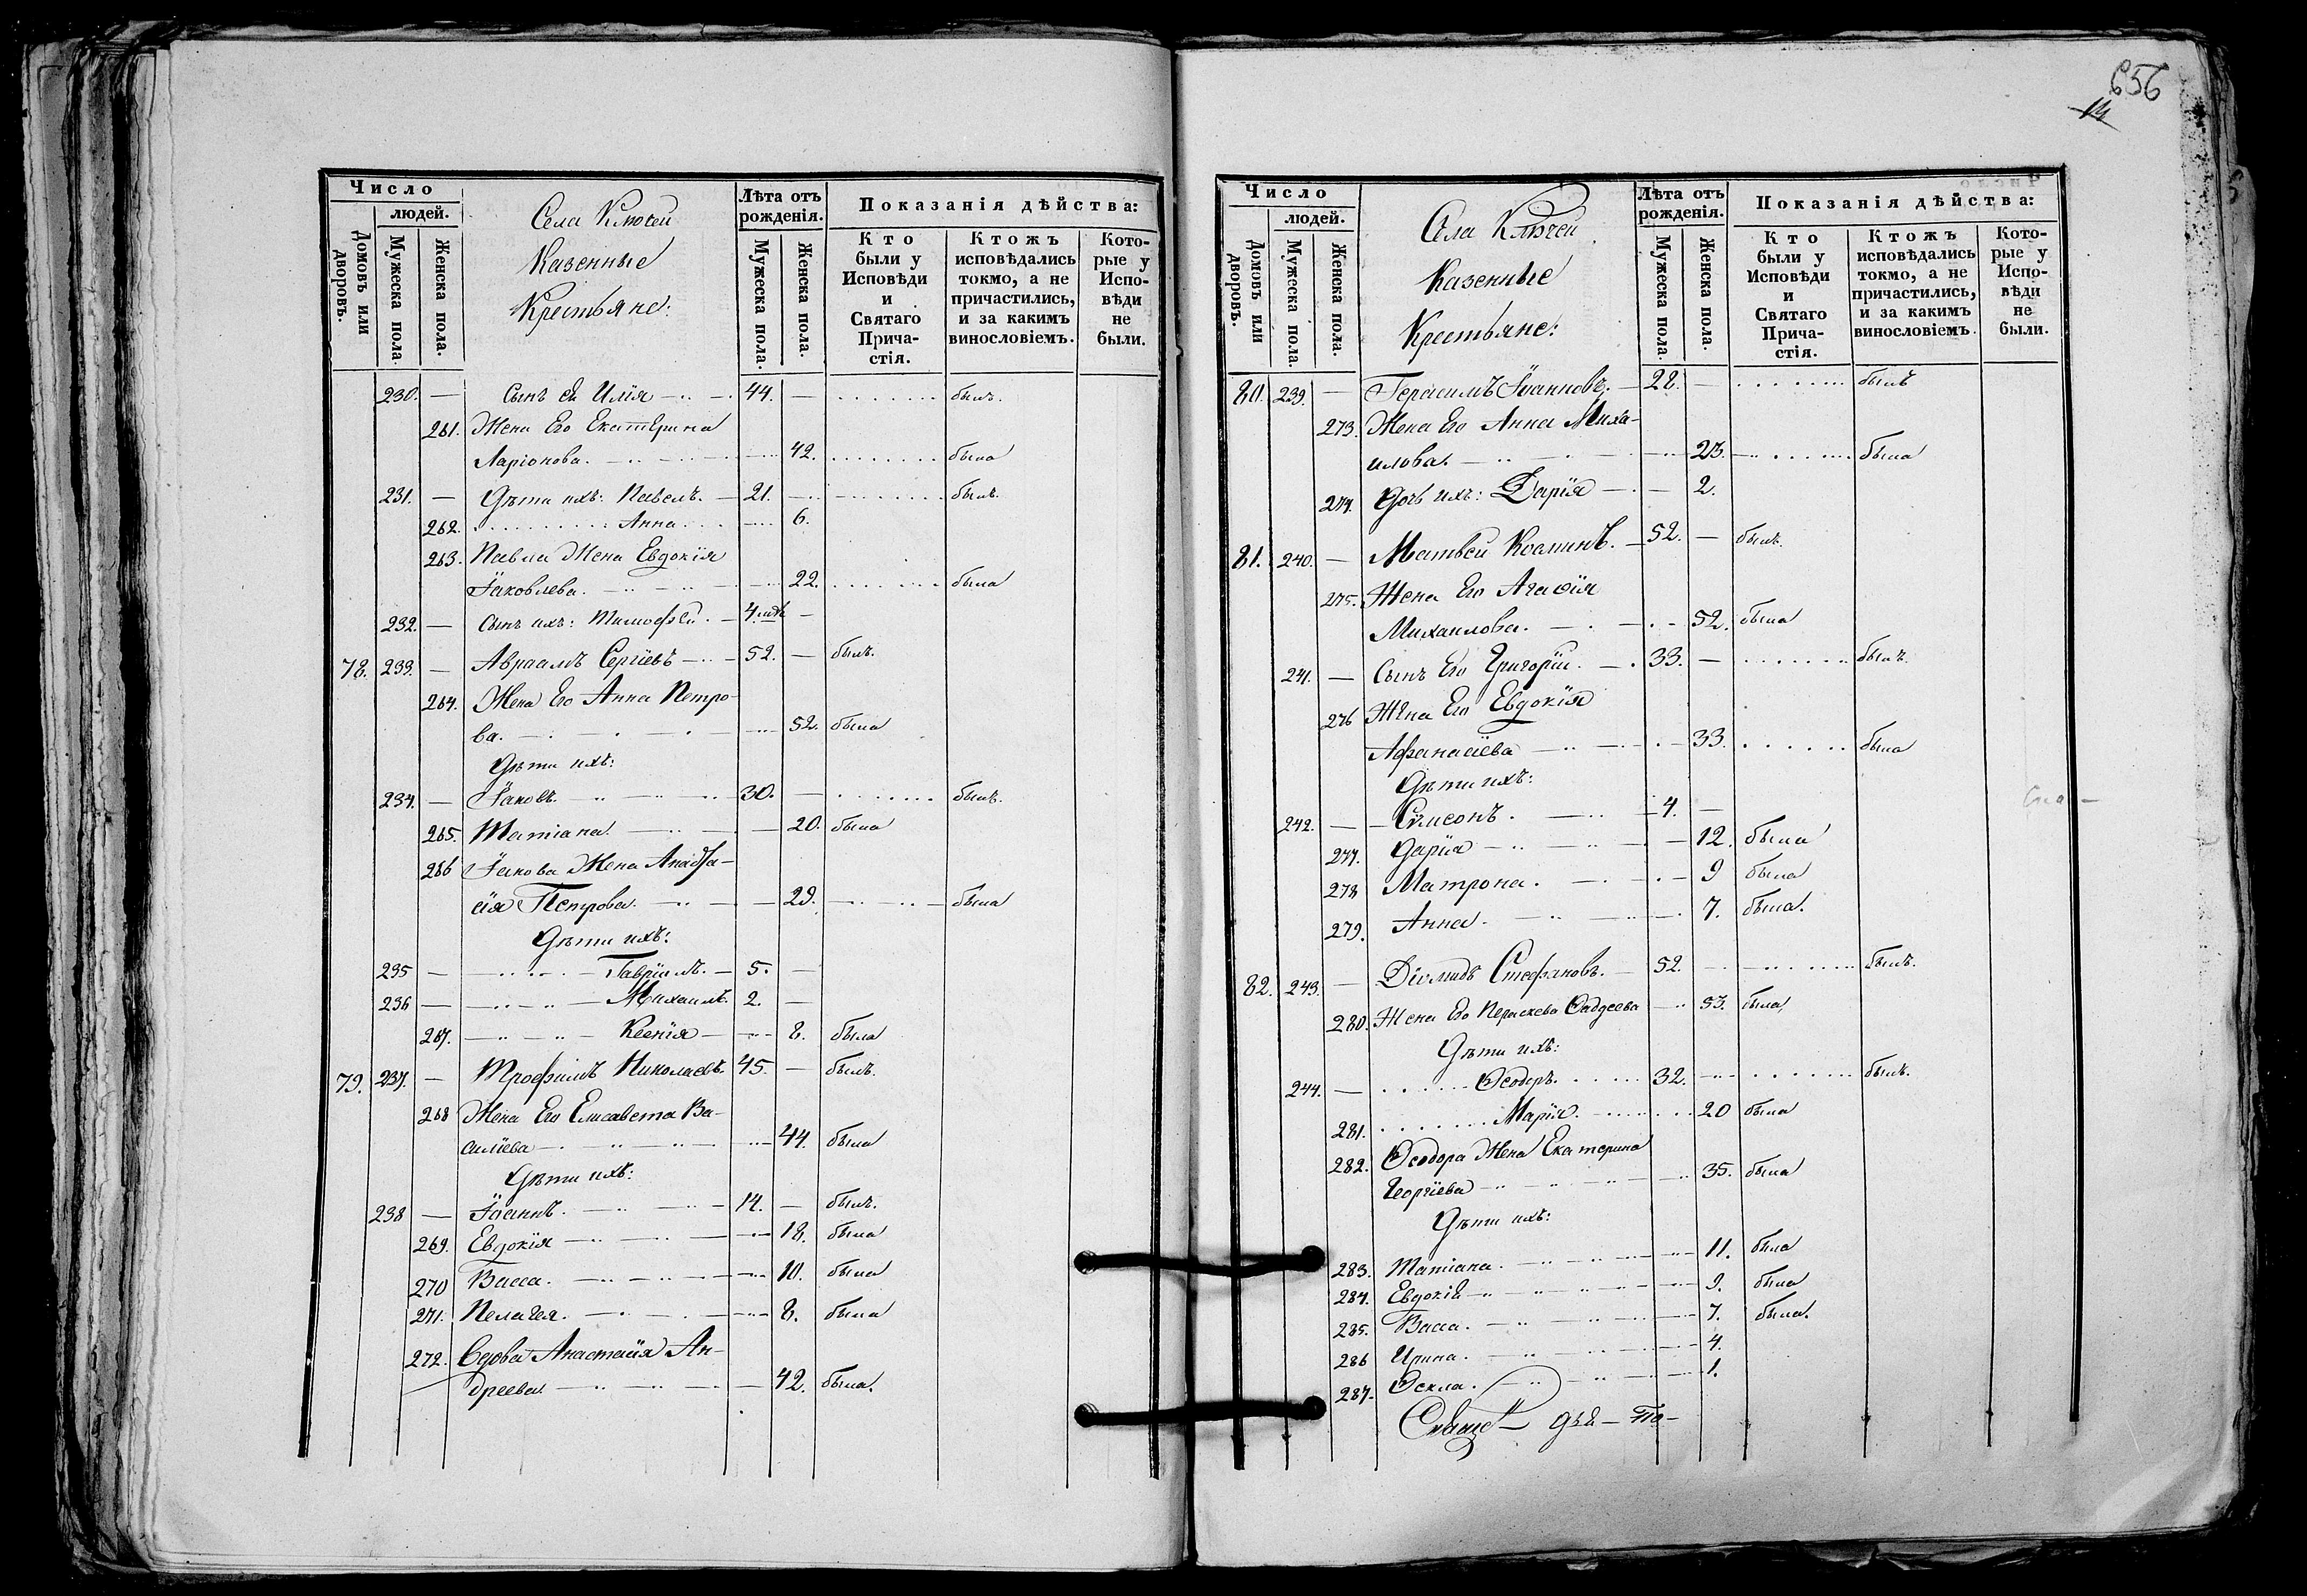 Число
людей.
Домовъ или дворовъ.
Мужеска пола.
Женска пола.
Села Ключей
Казенные
Крестьяне:
Лѣта отъ рожденія.
Мужеска пола.
Женска пола.
Показанія дѣйства:
Кто были у Исповѣди и Святаго Прича-стія.
Ктожъ исповѣдались токмо, а не причастились, и за какимъ винословіемъ.
Кото-рые у Испо-вѣди не были.
230. — Сынъ ея Илія 44. — былъ.
261. Жена Его Екатерина
Ларіонова. 42. была
231. — Дѣти ихъ: Павелъ. 21. былъ.
262. Анна 6.
263. Павла Жена Евдокія
Іаковлева. 22. была
232. — Сынъ ихъ: Тимофей. 4 —
78. 233. — Авраамъ Сергіевъ 52. — былъ.
264. Жена Его Анна Петро-
ва. 52. была
Дѣти ихъ:
234. — Іаковъ. 30. — былъ.
265. Татіана. 20. была
266 Іакова Жена
Петрова. 29. была
Дѣти ихъ:
235 — Гавріилъ. 5. —
236 — Михаилъ. 2. —
267. Ксенія 8. была
79. 237. — Трофимъ Николаевъ. 45. — былъ.
268 Жена Его Елисавета Ва-
силіева 44. была
Дѣти ихъ:
238 — Іоаннъ. 14. — былъ.
269. Евдокія 18. была
270 Васса. 10. была
271. Пелагея. 8. была
272. Вдова Анастасія Ан-
дреева. 42. была.
656
14
Число
людей.
Домовъ или дворовъ.
Мужеска пола.
Женска пола.
Села Ключей
Казенные
Крестьяне:
Лѣта отъ рожденія.
Мужеска пола.
Женска пола.
Показанія дѣйства:
Кто были у Исповѣди и Святаго Прича-стія.
Ктожъ исповѣдались токмо, а не причастились, и за какимъ винословіемъ.
Кото-рые у Испо-вѣди не были.
80. 239. — Герасимъ Іоанновъ. 28. — былъ
273. Жена Его Анна Миха-
илова. 23. была
274. Дочь ихъ: Дарія 2.
81. 240. — Матвей Козминъ. 52. — былъ.
275. Жена Его Агафія
Михаилова. 52. была
241. — Сынъ Его Григорій. 33. — былъ.
276 Жена Его Евдокія
Афанасіева 33. была
Дѣти ихъ:
242. — Сѵмеонъ. 4. —
277. Дарія 12. была
278 Матрона. 9 была
279. Анна. 7. была.
82. 243. — Діомидъ Стефановъ. 52. былъ.
280. Жена Его Параскева Фаддеева 53. была,
Дѣти ихъ:
244. — Ѳеодоръ. 32. былъ.
281. Марія. 20 была
282. Ѳеодора Жена Екатерина
Георгіева 35. была
Дѣти ихъ:
283. Татіана. 11. была
284. Евдокія 9. была
285. Васса. 7. была.
286 Ирина. 4.
287. Ѳекла. 1.